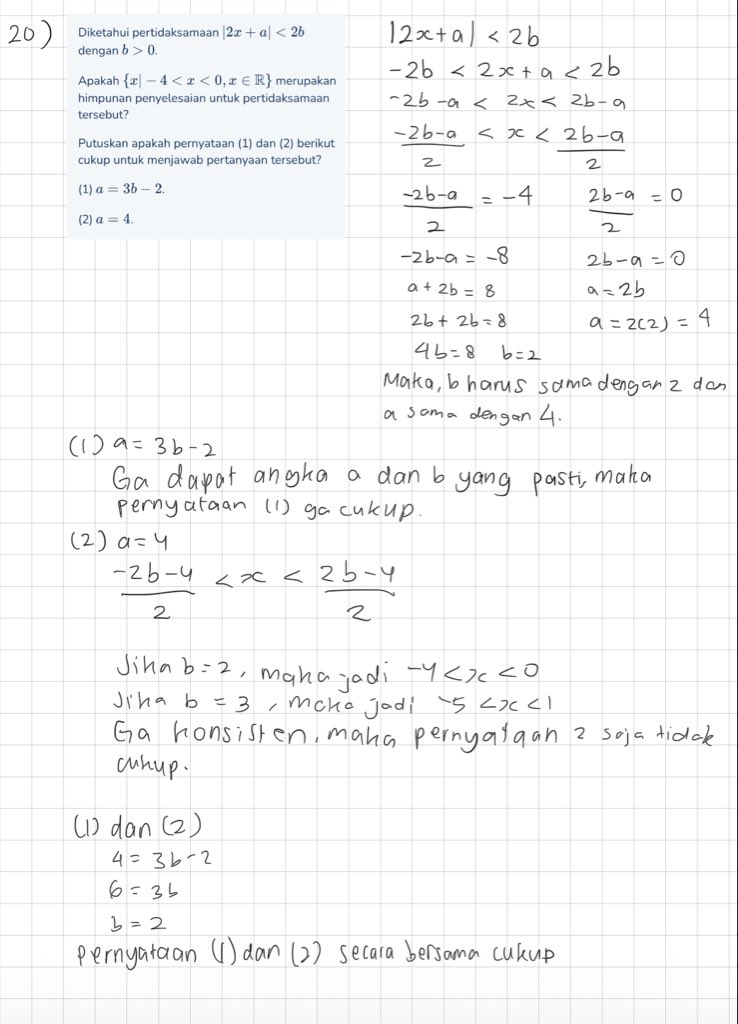 20)
Diketahui pertidaksamaan |2x + a| < 2b
dengan b > 0.
Apakah {x| − 4 < x < 0, x ∈ ℝ} merupakan
himpunan penyelesaian untuk pertidaksamaan
tersebut?
Putuskan apakah pernyataan (1) dan (2) berikut
cukup untuk menjawab pertanyaan tersebut?
(1) a = 3b − 2.
(2) a = 4.
|2x+a| < 2b
-2b < 2x + a < 2b
-2b -a < 2x < 2b-a
(-2b-a)/2 < x < (2b-a)/2
(-2b-a)/2 = -4 (2b-a)/2 = 0
-2b-a = -8 2b-a = 0
a + 2b = 8 a = 2b
2b + 2b = 8 a = 2(2) = 4
4b = 8 b = 2
Maka, b harus sama dengan 2 dan
a sama dengan 4.
(1) a = 3b-2
Ga dapat angka a dan b yang pasti, maka
pernyataan (1) ga cukup.
(2) a = 4
(-2b-4)/2 < x < (2b-4)/2
Jika b = 2, maka jadi -4 < x < 0
Jika b = 3, maka jadi -5 < x < 1
Ga konsisten, maka pernyataan 2 saja tidak
cukup.
(1) dan (2)
4 = 3b-2
6 = 3b
b = 2
Pernyataan (1) dan (2) secara bersama cukup